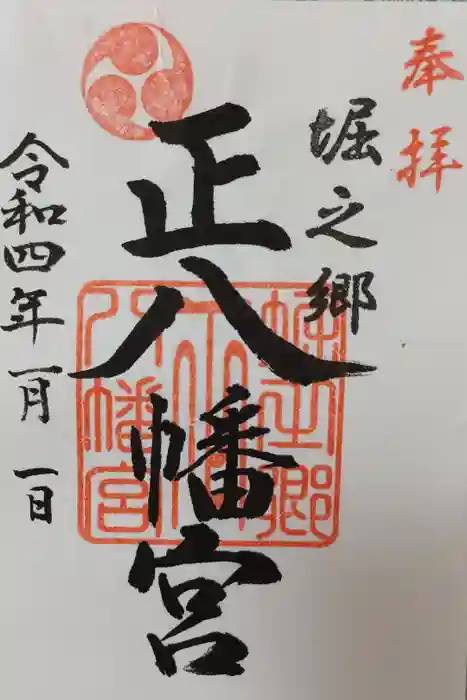 奉拝
堀之郷
正八幡宮
令和四年一月一日
堀之郷
正
八幡宮